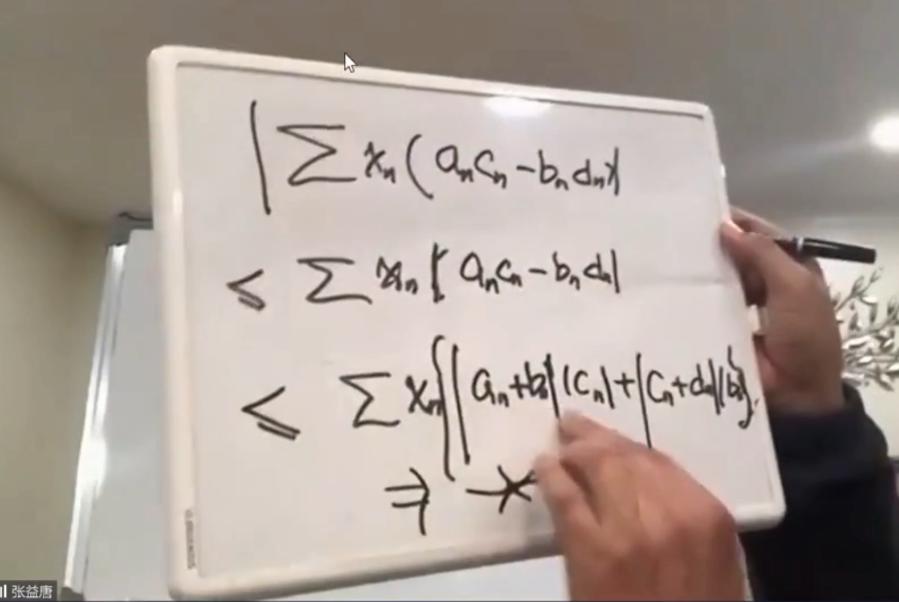 |∑ xₙ(aₙcₙ-bₙdₙ)|
≤ ∑ xₙ|aₙcₙ-bₙdₙ|
≤ ∑ xₙ{|aₙ+bₙ||cₙ|+|cₙ+dₙ||bₙ|}.
⇒ *
张益唐